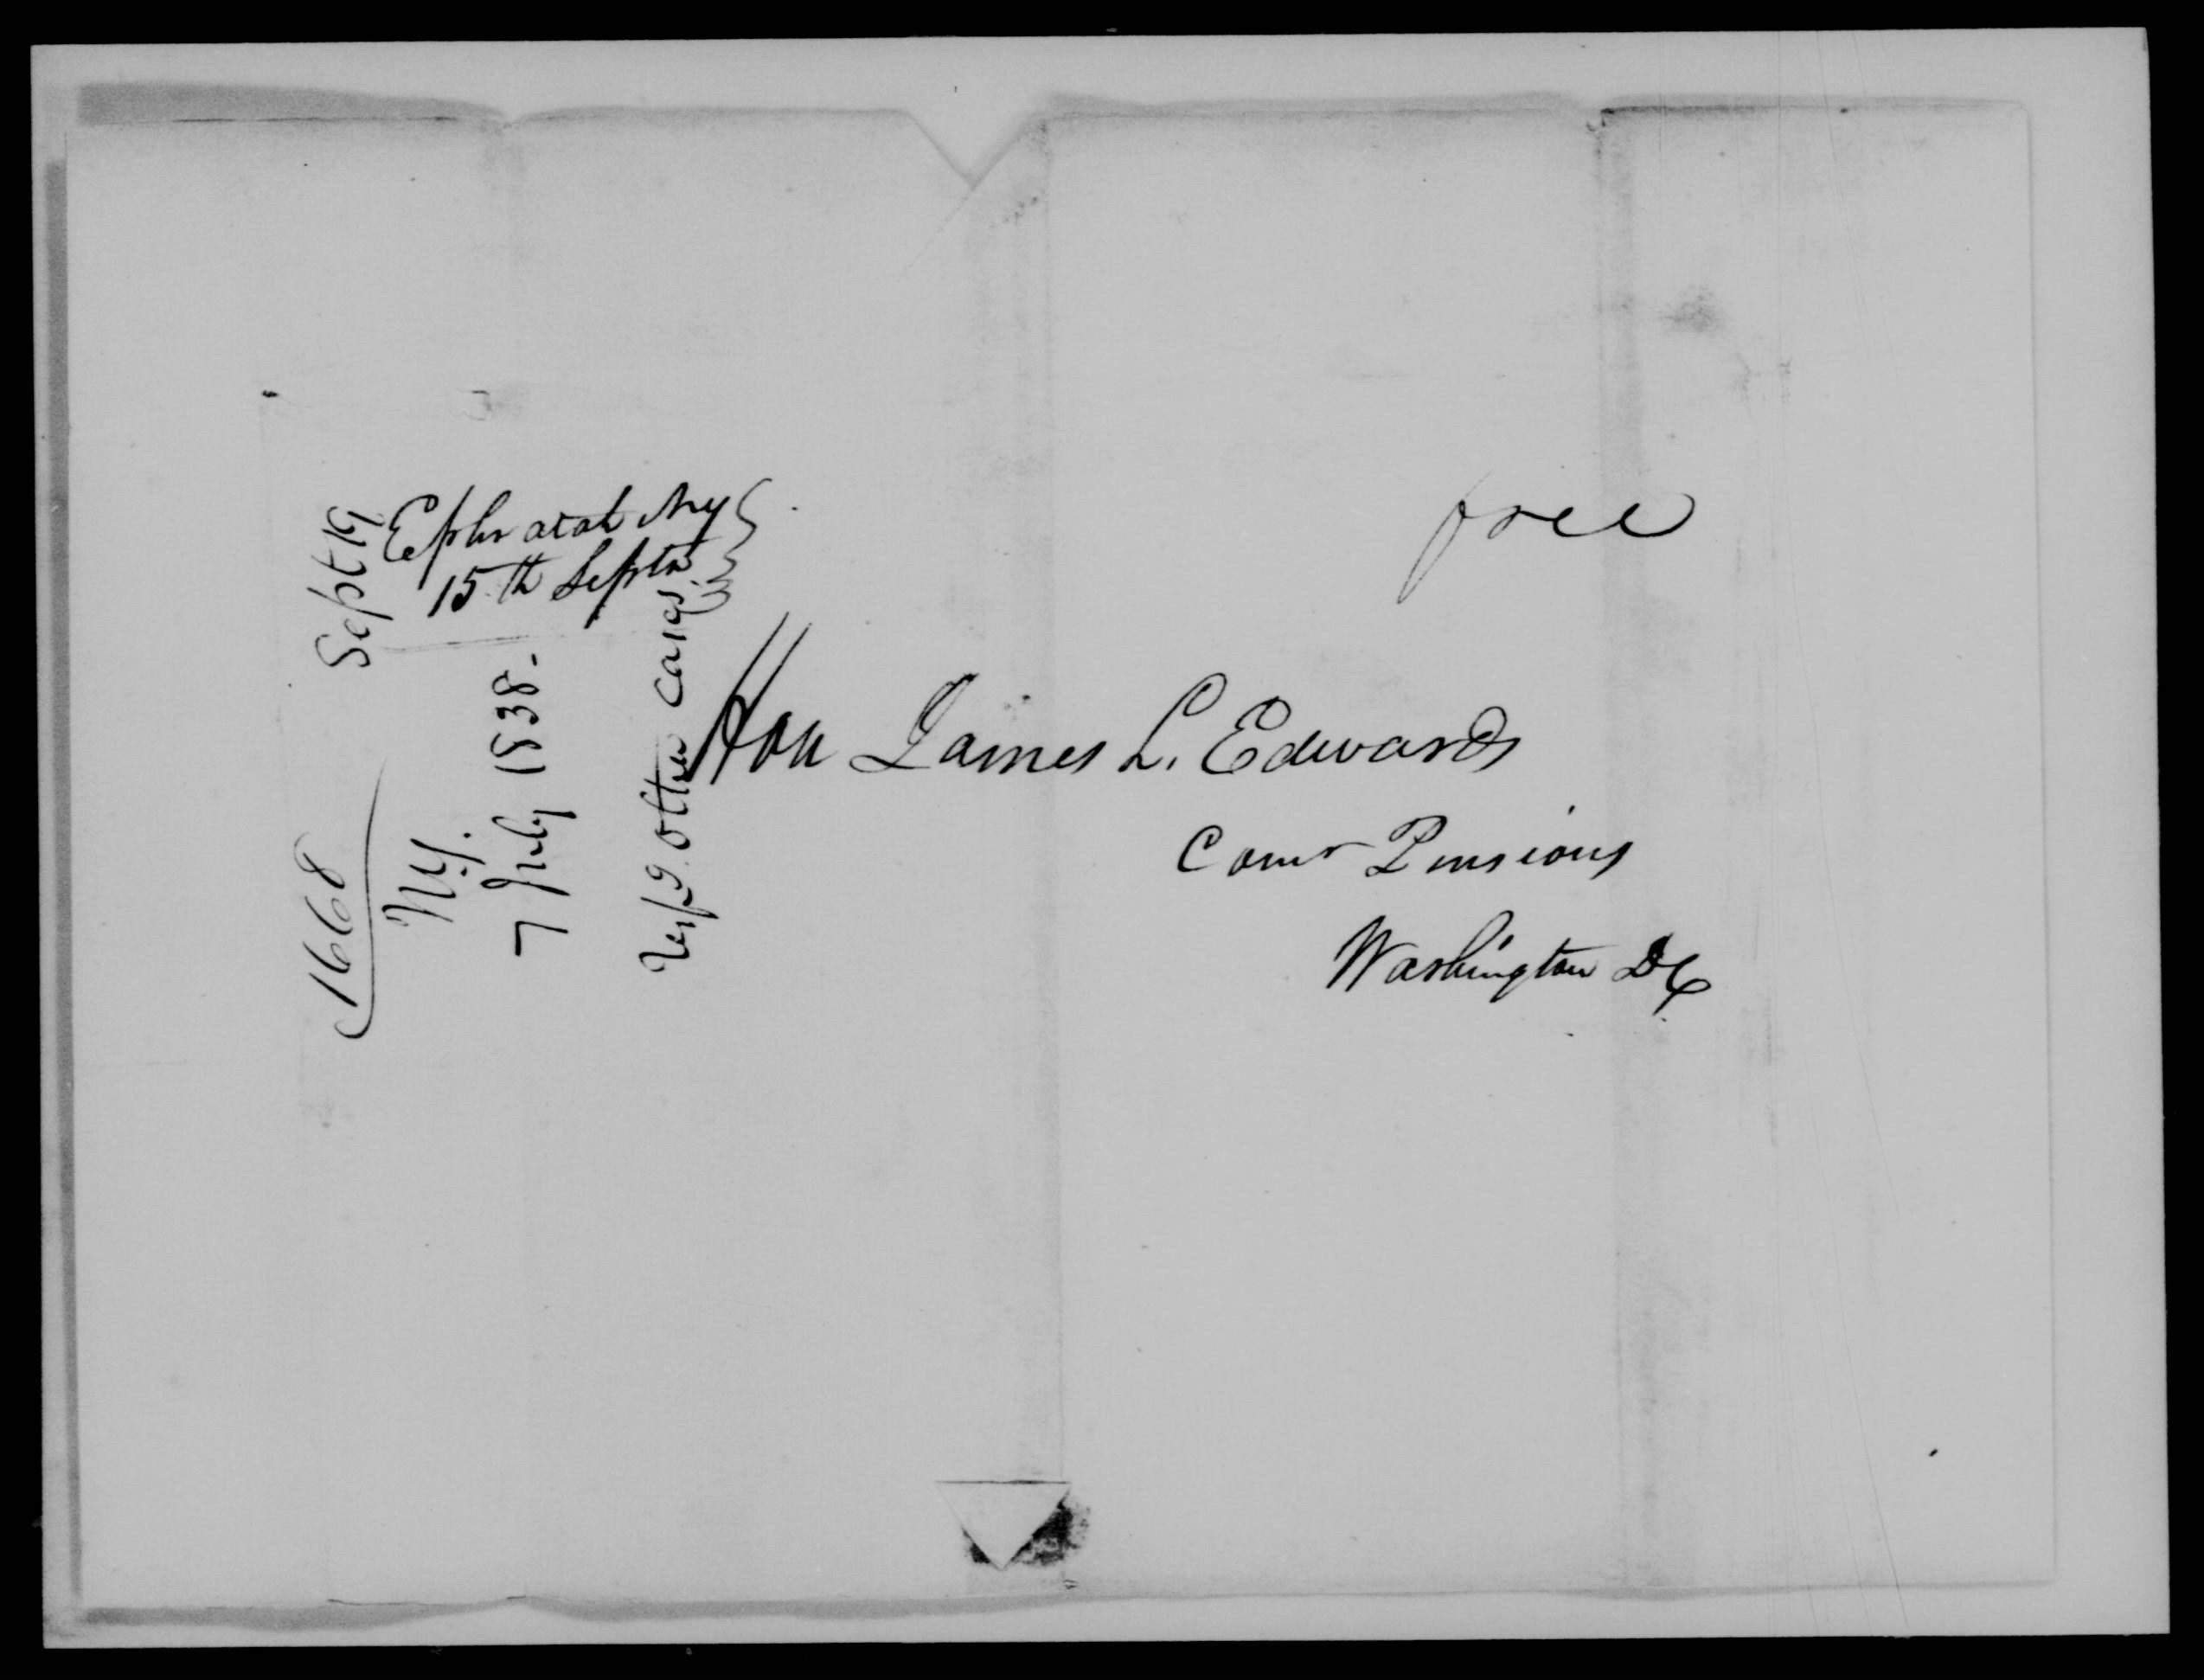 Ephratah Ny
15th Septr
free
Hon James L. Edwards
Comr Pensions
Washington DC
Sept 19
1668
N.Y.
7 July 1838.
other cases.